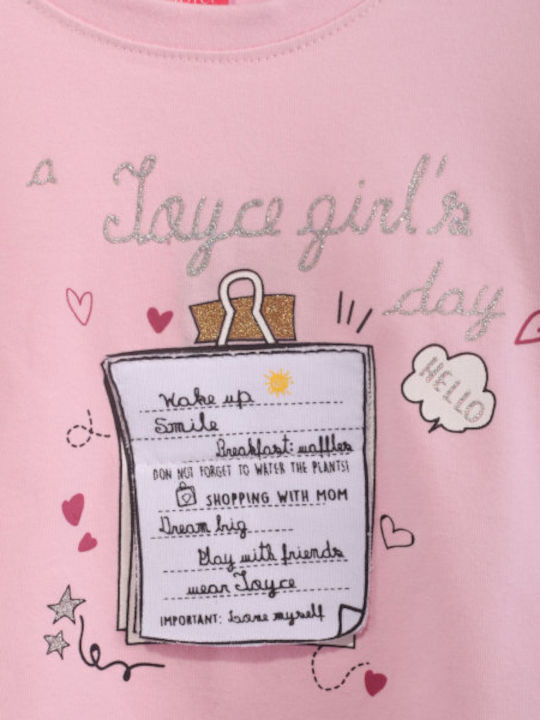 a
Joyce girl's
day
HELLO
Wake up
Smile
Breakfast: waffles
DON NOT FORGET TO WATER THE PLANTS!
SHOPPING WITH MOM
Dream big
Play with friends
wear Joyce
IMPORTANT: Love myself